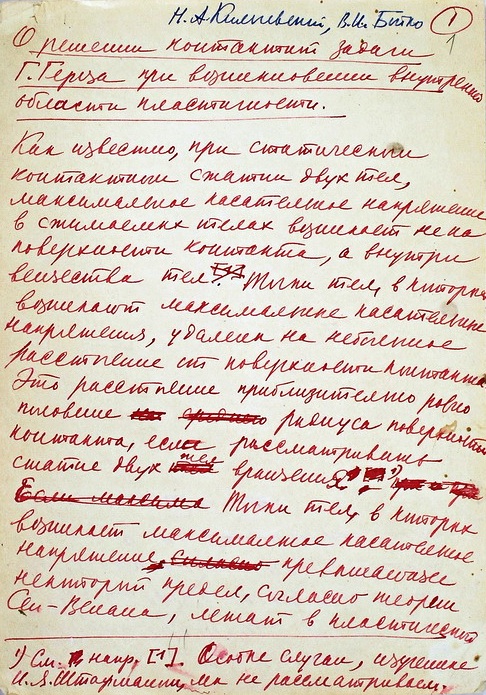 Н. А. Кильчевский, В. И. Бойко
1
1
О решении контактит задачи
Г. Герца при возникновении внутренно
области пластичности.
Как известно, при статическом
контактном сжатии двух тел,
максимальное касательное напряжение
в сжимаемых телах возникает не на
поверхности контакта, а внутри
вещества тел. Точки тел, в которых
возникают максимальные касательные
напряжения, удалены на небольшое
расстояние от поверхности контакта.
Это расстояние приблизительно равно
половине радиуса поверхности
контакта, если рассматривать
сжатие двух тел вращения. ¹)
Если максима Точки тел, в которых
возникает максимальное касательное
напряжение, превышающее
некоторый предел, согласно теории
Сен-Венана, лежат в пластической
¹) См. напр. [1]. Особые случаи, изученные
И. Я. Штаерманом, мы не рассматриваем.